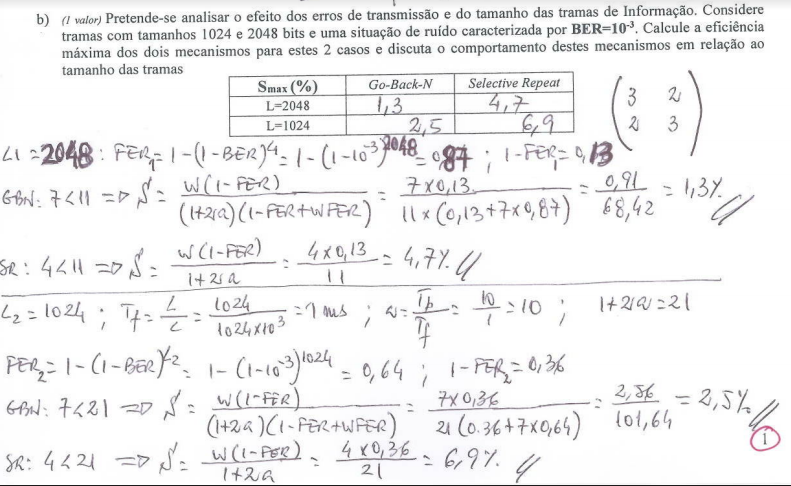 b) (1 valor) Pretende-se analisar o efeito dos erros de transmissão e do tamanho das tramas de Informação. Considere
tramas com tamanhos 1024 e 2048 bits e uma situação de ruído caracterizada por BER=10⁻³. Calcule a eficiência
máxima dos dois mecanismos para estes 2 casos e discuta o comportamento destes mecanismos em relação ao
tamanho das tramas
Smax (%) Go-Back-N Selective Repeat
L=2048 1,3 4,7
L=1024 2,5 6,9
(3 2
2 3)
L1 = 2048 : FER₁ = 1-(1-BER)^L = 1-(1-10⁻³)²⁰⁴⁸ = 0,87 ; 1-FER₁ = 0,13
GBN: 7<11 => S = W(1-FER) / (1+2a)(1-FER+WFER) = 7x0,13 / 11x(0,13+7x0,87) = 0,91 / 68,42 = 1,3%
SR: 4<11 => S = W(1-FER) / 1+2a = 4x0,13 / 11 = 4,7%
L₂ = 1024 ; Tf = L / C = 1024 / 1024x10³ = 1 ms ; a = Tp / Tf = 10 / 1 = 10 ; 1+2a = 21
FER₂ = 1-(1-BER)^L2 = 1-(1-10⁻³)¹⁰²⁴ = 0,64 ; 1-FER₂ = 0,36
GBN: 7<21 => S = W(1-FER) / (1+2a)(1-FER+WFER) = 7x0,36 / 21(0.36+7x0,64) = 2,56 / 101,64 = 2,5%
1
SR: 4<21 => S = W(1-FER) / 1+2a = 4x0,36 / 21 = 6,9%